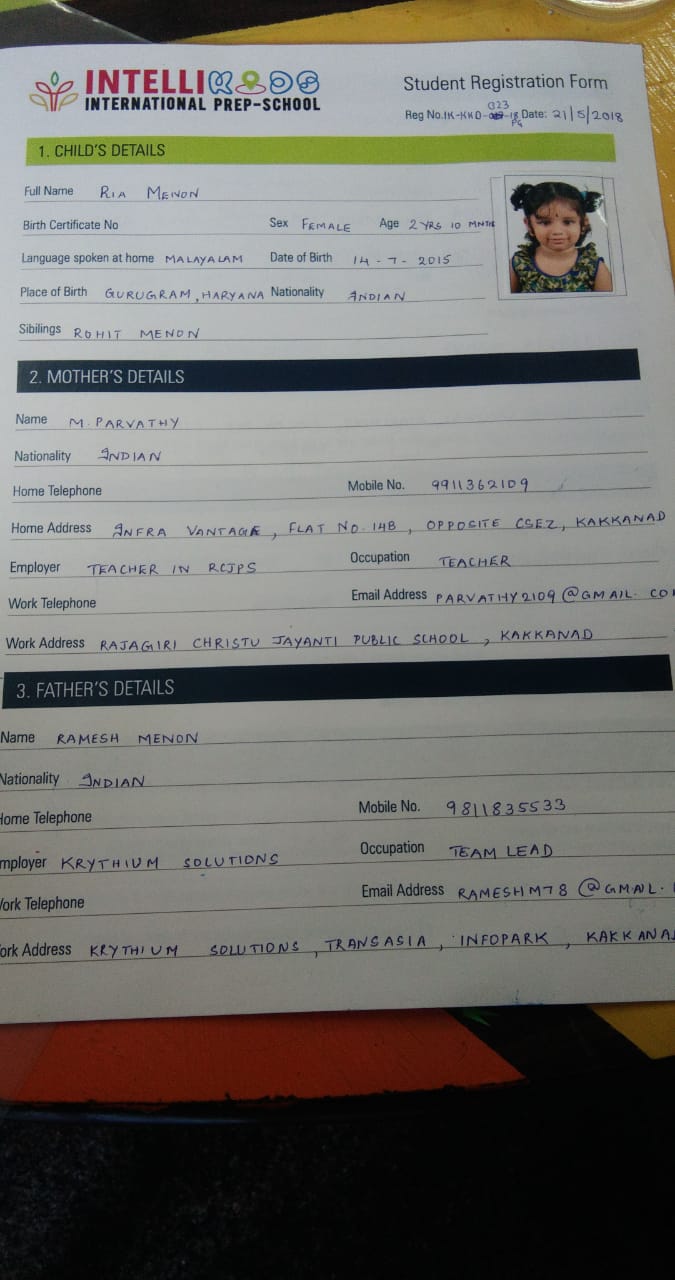 INTELLIKIDS
INTERNATIONAL PREP-SCHOOL
Student Registration Form
023
Reg No. IK-KKD- -18 Date: 21/5/2018
PG
1. CHILD'S DETAILS
Full Name RIA MENON
Birth Certificate No Sex FEMALE Age 2 YRS 10 MNTH
Language spoken at home MALAYALAM Date of Birth 14-7-2015
Place of Birth GURUGRAM, HARYANA Nationality INDIAN
Sibilings ROHIT MENON
2. MOTHER'S DETAILS
Name M. PARVATHY
Nationality INDIAN
Home Telephone Mobile No. 9911362109
Home Address INFRA VANTAGE, FLAT NO. 14B, OPPOSITE CSEZ, KAKKANAD
Employer TEACHER IN RCJPS Occupation TEACHER
Work Telephone Email Address PARVATHY2109@GMAIL.CO
Work Address RAJAGIRI CHRISTU JAYANTI PUBLIC SCHOOL, KAKKANAD
3. FATHER'S DETAILS
Name RAMESH MENON
Nationality INDIAN
Home Telephone Mobile No. 9811835533
mployer KRYTHIUM SOLUTIONS Occupation TEAM LEAD
Work Telephone Email Address RAMESHM78@GMAIL.
ork Address KRYTHIUM SOLUTIONS, TRANSASIA, INFOPARK, KAKKANA